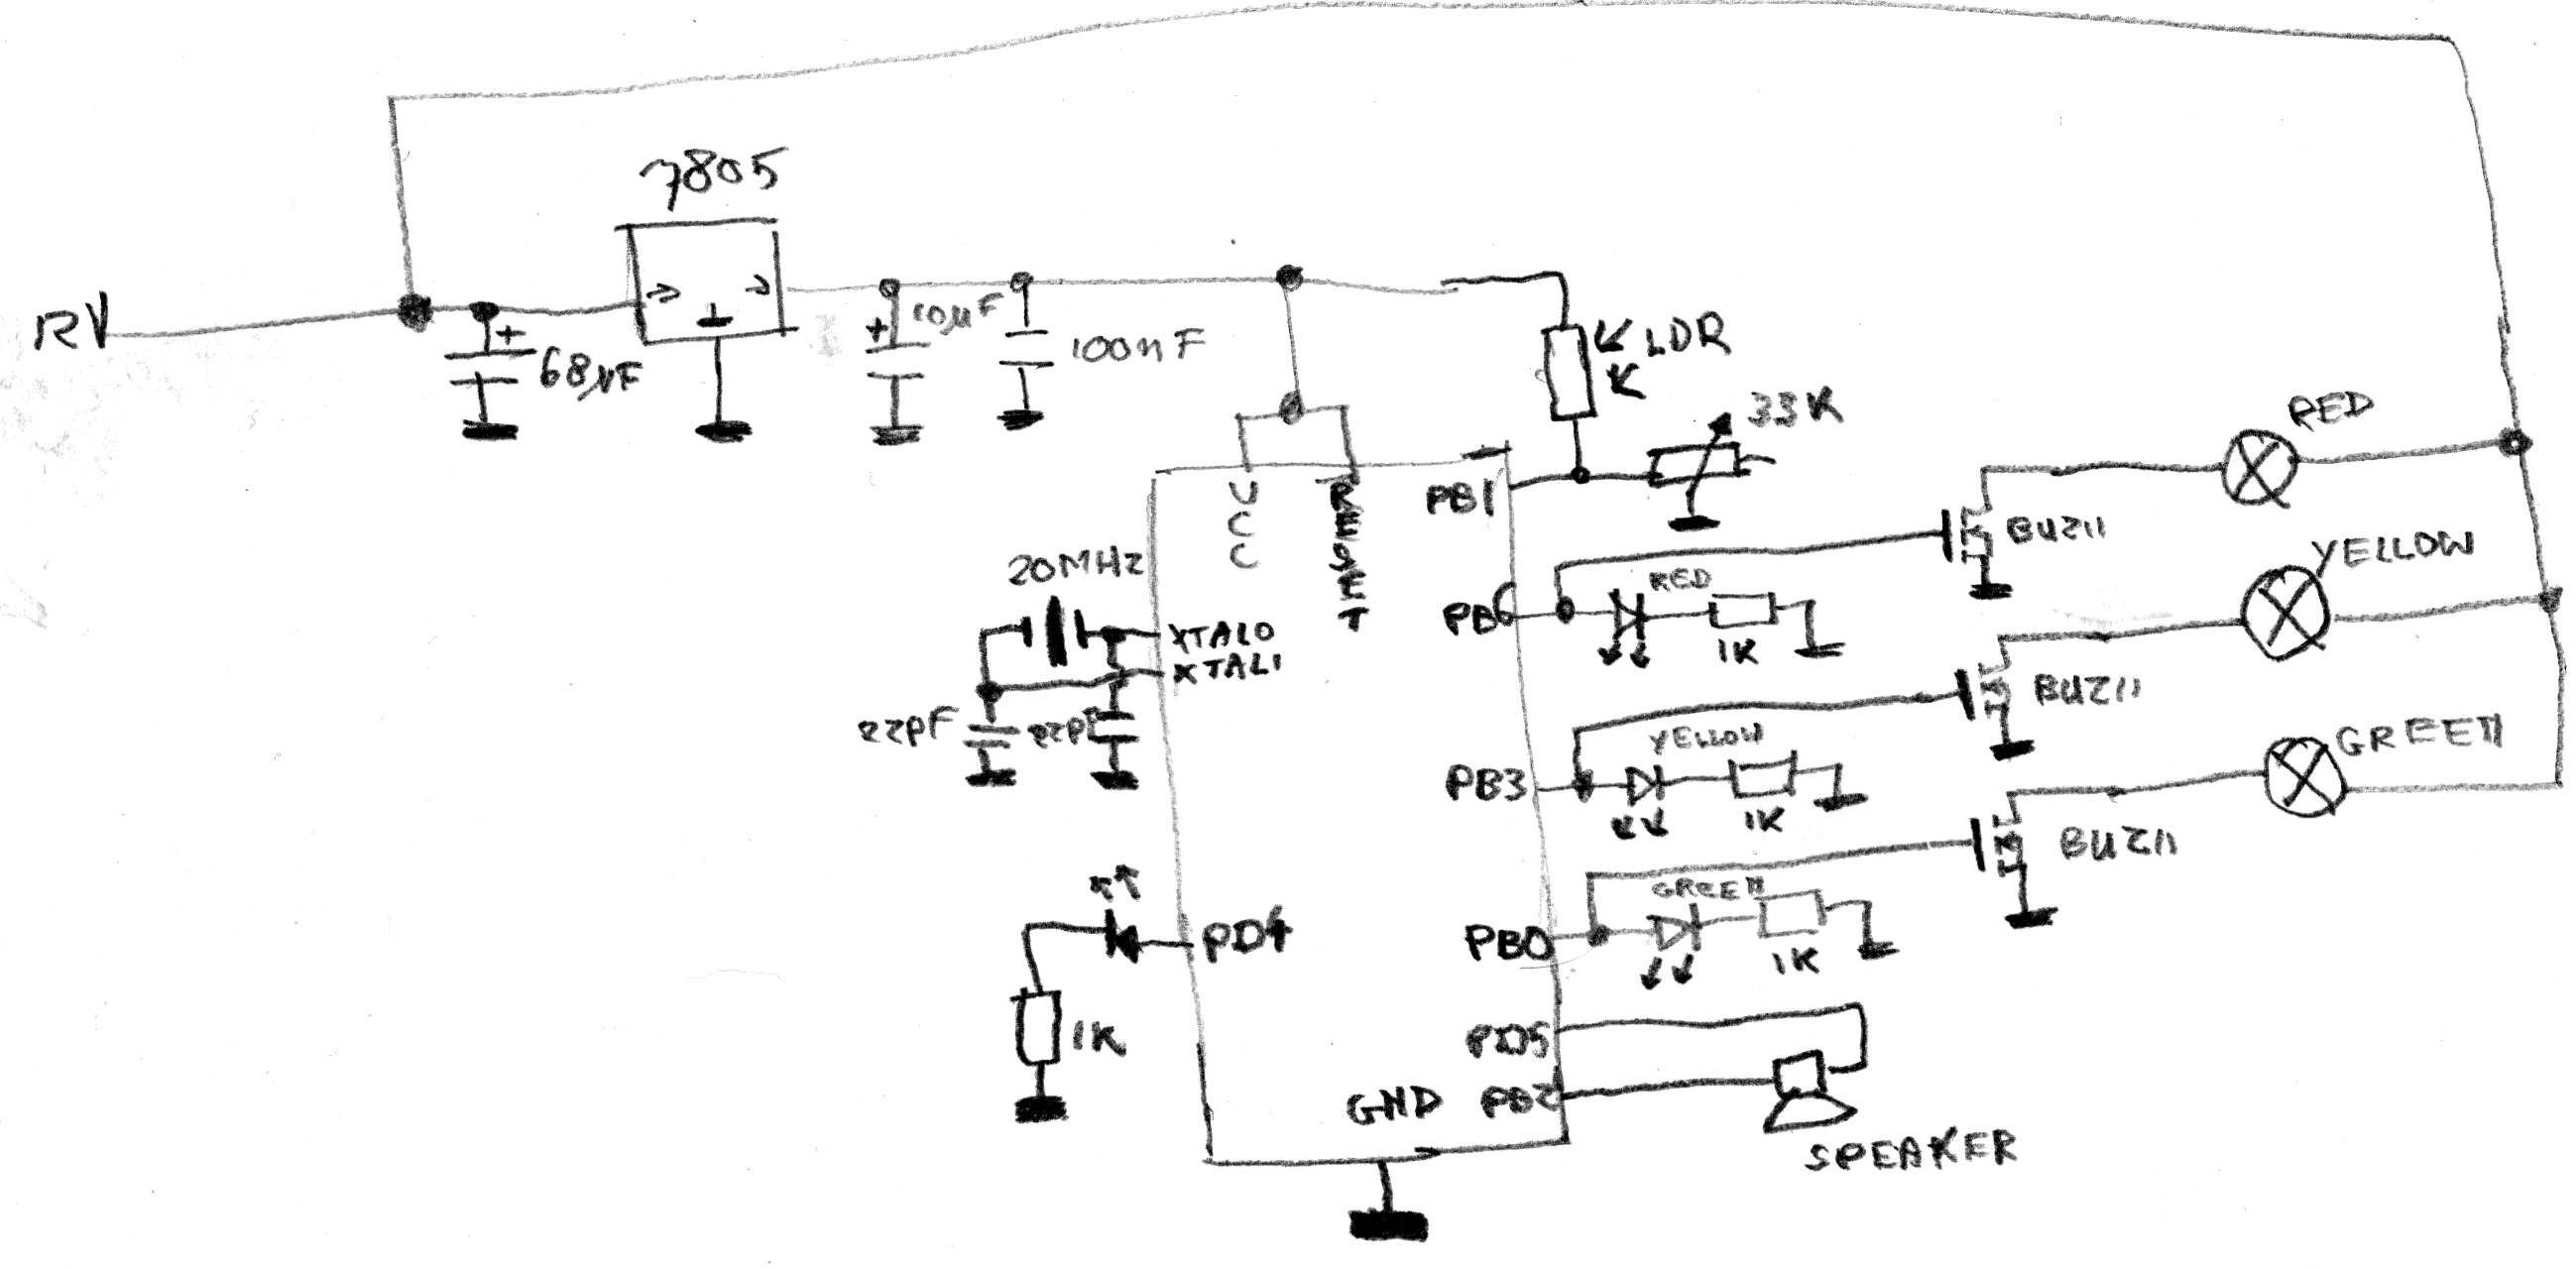 7805
RV
68µF
10µF
100nF
LDR
33K
RED
VCC
RESET
PB1
BUZ11
YELLOW
20MHZ
RED
PB6
1K
XTAL0
XTAL1
22pF
22pF
BUZ11
GREEN
YELLOW
PB3
1K
BUZ11
GREEN
PD4
PB0
1K
1K
PD5
GND
PB2
SPEAKER